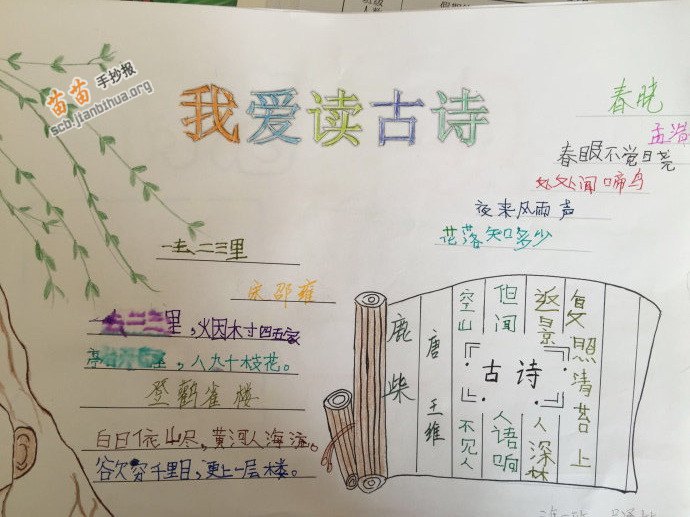 苗苗手抄报
scb.jianbihua.org
我爱读古诗
春晓
孟浩
春眼不觉日尧
处处闻啼鸟
夜来风雨声
花落知多少
一去二三里
宋 邵雍
一去二三里，火因木寸四五家
亭 座，八九十枝花。
登鹳雀楼
白日依山尽，黄河人海流。
谷欠穷千里目，更上一层楼。
鹿柴
唐 王维
空山 不见人
但闻 人语响
返景 入深林
复照青苔上
古诗